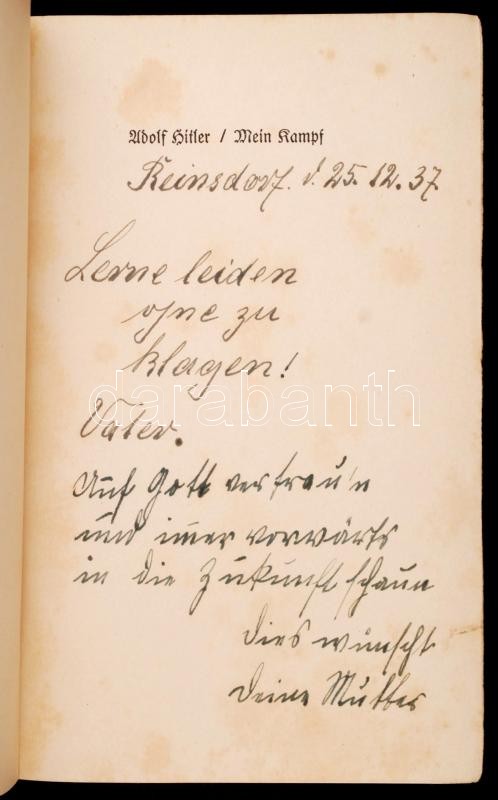 Adolf Hitler / Mein Kampf
Reinsdorf. d. 25.12.37
Lerne leiden
ohne zu
klagen!
Vater.
darabanth
Auf Gott vertrau'n
und imer vorwärts
in die Zukunft schaun
dies wünscht
Deine Mutter